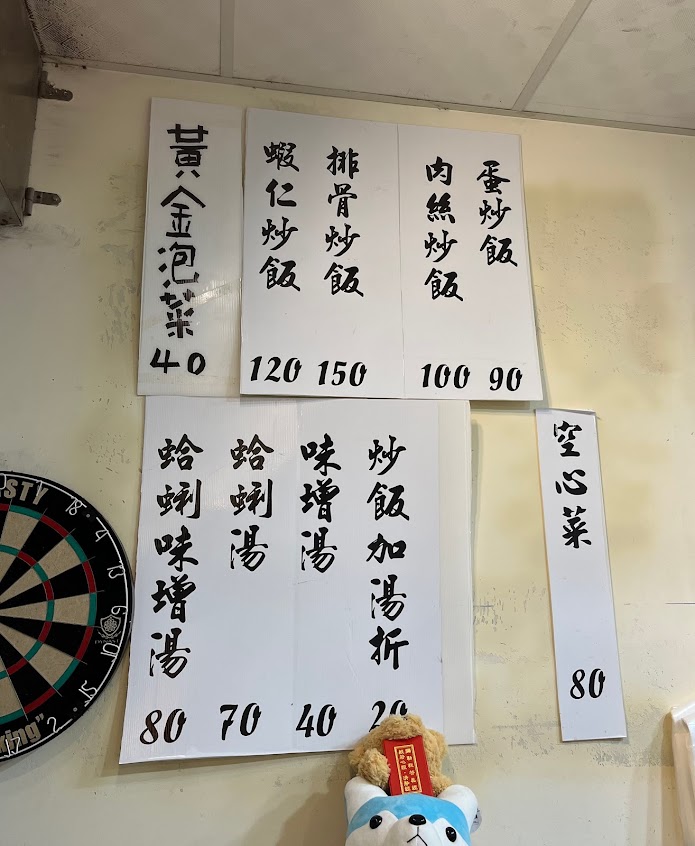 蛋炒飯 90
肉絲炒飯 100
排骨炒飯 150
蝦仁炒飯 120
黃金泡菜 40
空心菜 80
炒飯加湯折 20
味增湯 40
蛤蜊湯 70
蛤蜊味增湯 80
18 4 13 6 15 2 17